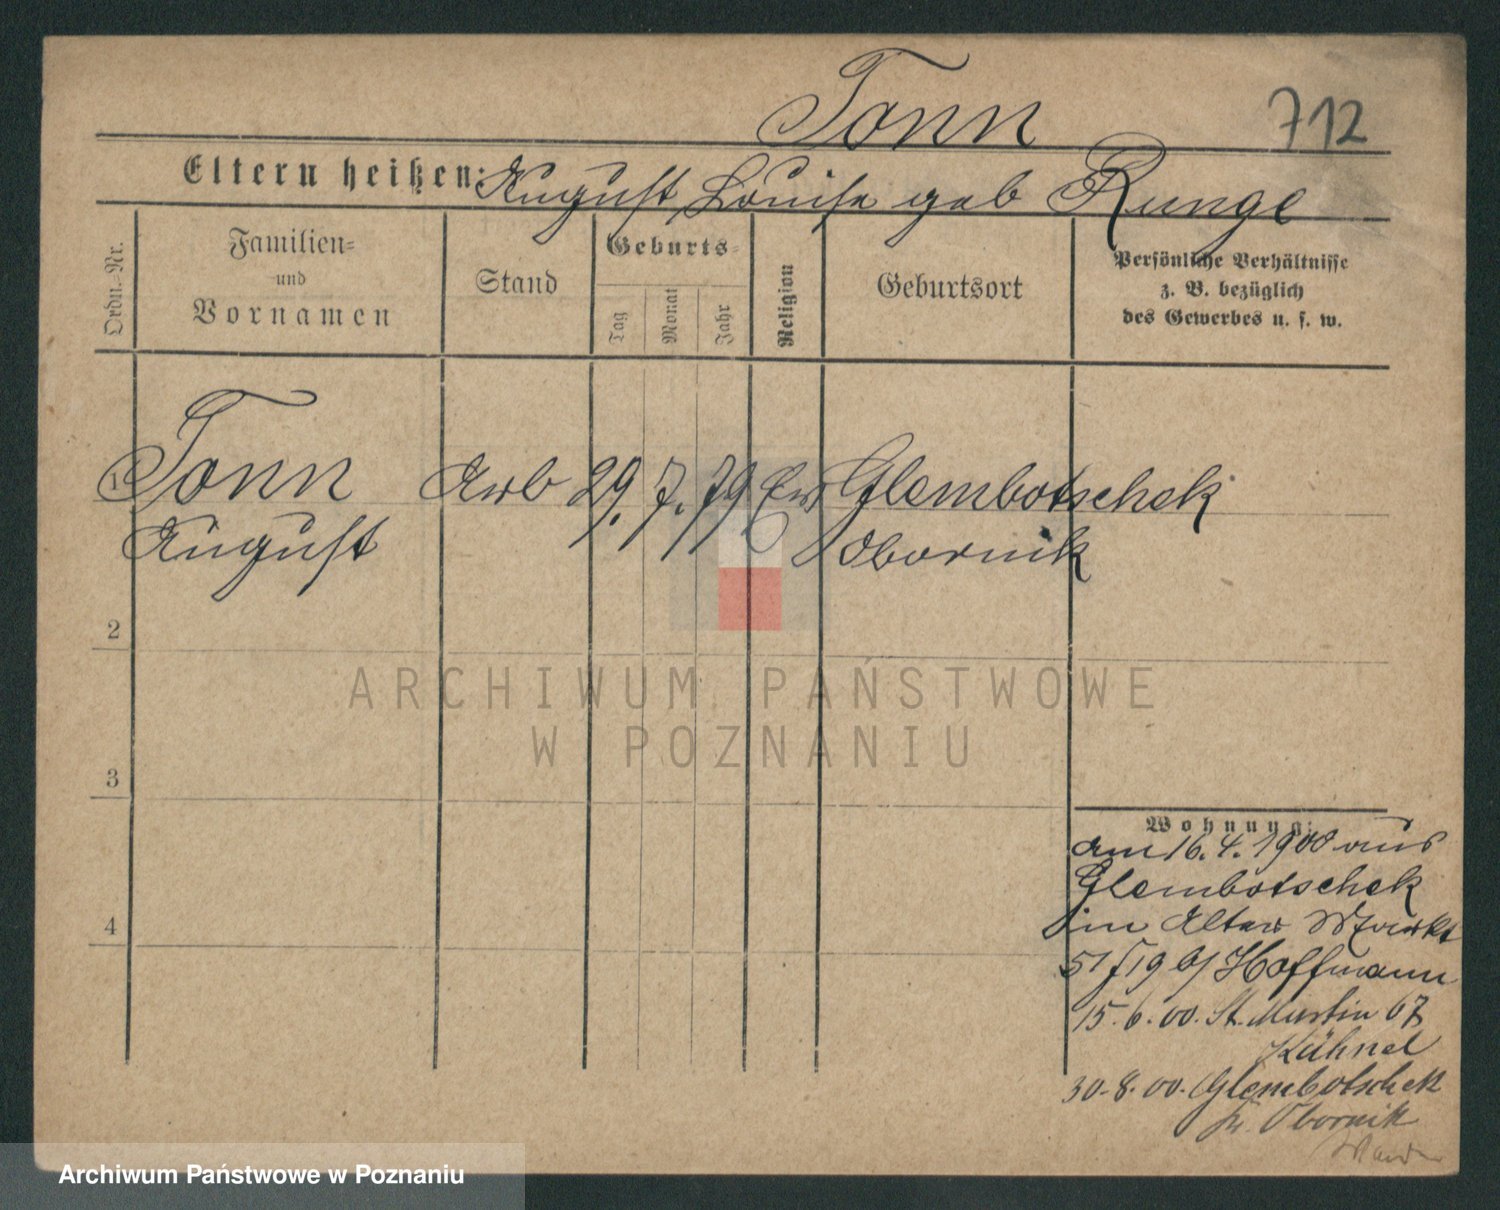 Tonn
712
Eltern heißen: August, Louise geb Runge
Ordn.-Nr.
Familien-
und
Vornamen
Stand
Geburts-
Tag
Monat
Jahr
Religion
Geburtsort
Persönliche Verhältnisse
z. B. bezüglich
des Gewerbes u. s. w.
1 Tonn Arb 29. 7. 79 Ev Glembotschek
August Obornik
2
3
4
Wohnung:
am 16. 4. 1900 aus
Glembotschek
in Alter Markt
51 19 b/ Hoffmann
15. 6. 00. St. Martin 67
Kühnel
30. 8. 00. Glembotschek
Kr. Obornik
ARCHIWUM PAŃSTWOWE
W POZNANIU
Archiwum Państwowe w Poznaniu